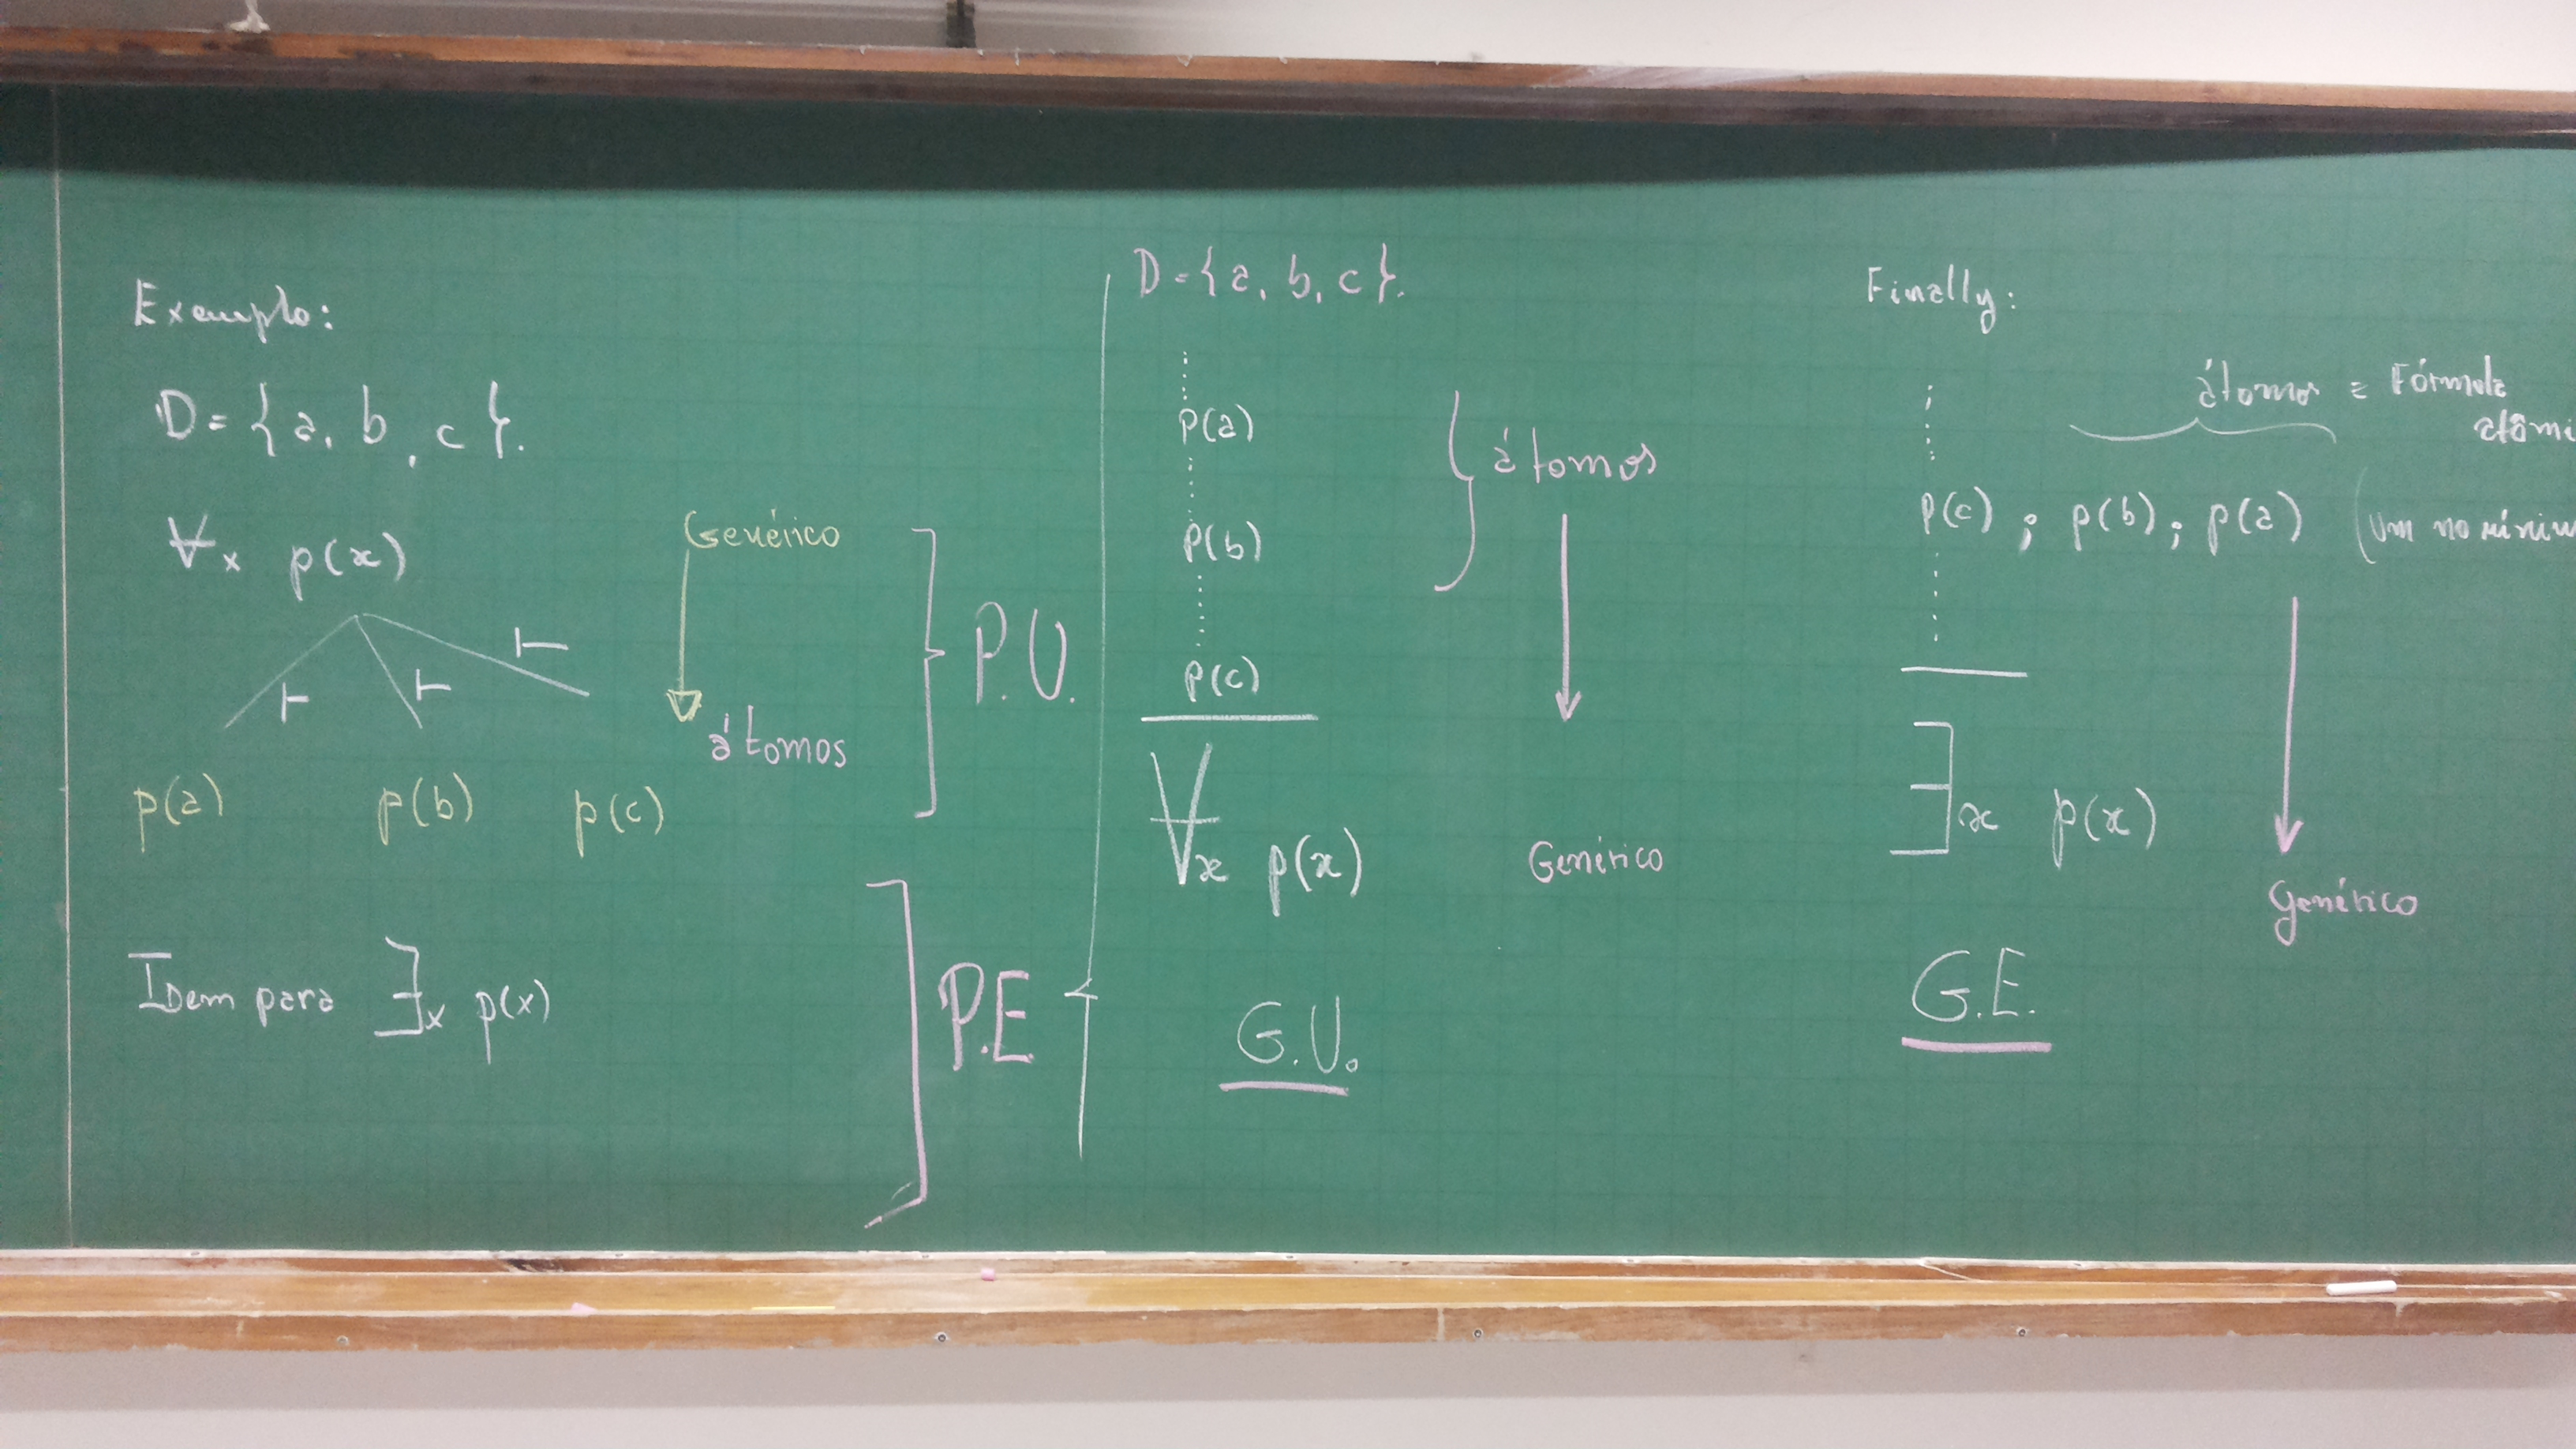 Exemplo:
D = {a, b, c}.
∀x p(x)
Genérico
⊢ ⊢ ⊢
átomos
p(a) p(b) p(c)
P.U.
Idem para ∃x p(x)
P.E.
D = {a, b, c}.
p(a)
átomos
p(b)
p(c)
∀x p(x)
Genérico
G.U.
Finally:
átomos = Fórmula
atômi
p(c) ; p(b) ; p(a) (um no mínim
∃x p(x)
Genérico
G.E.